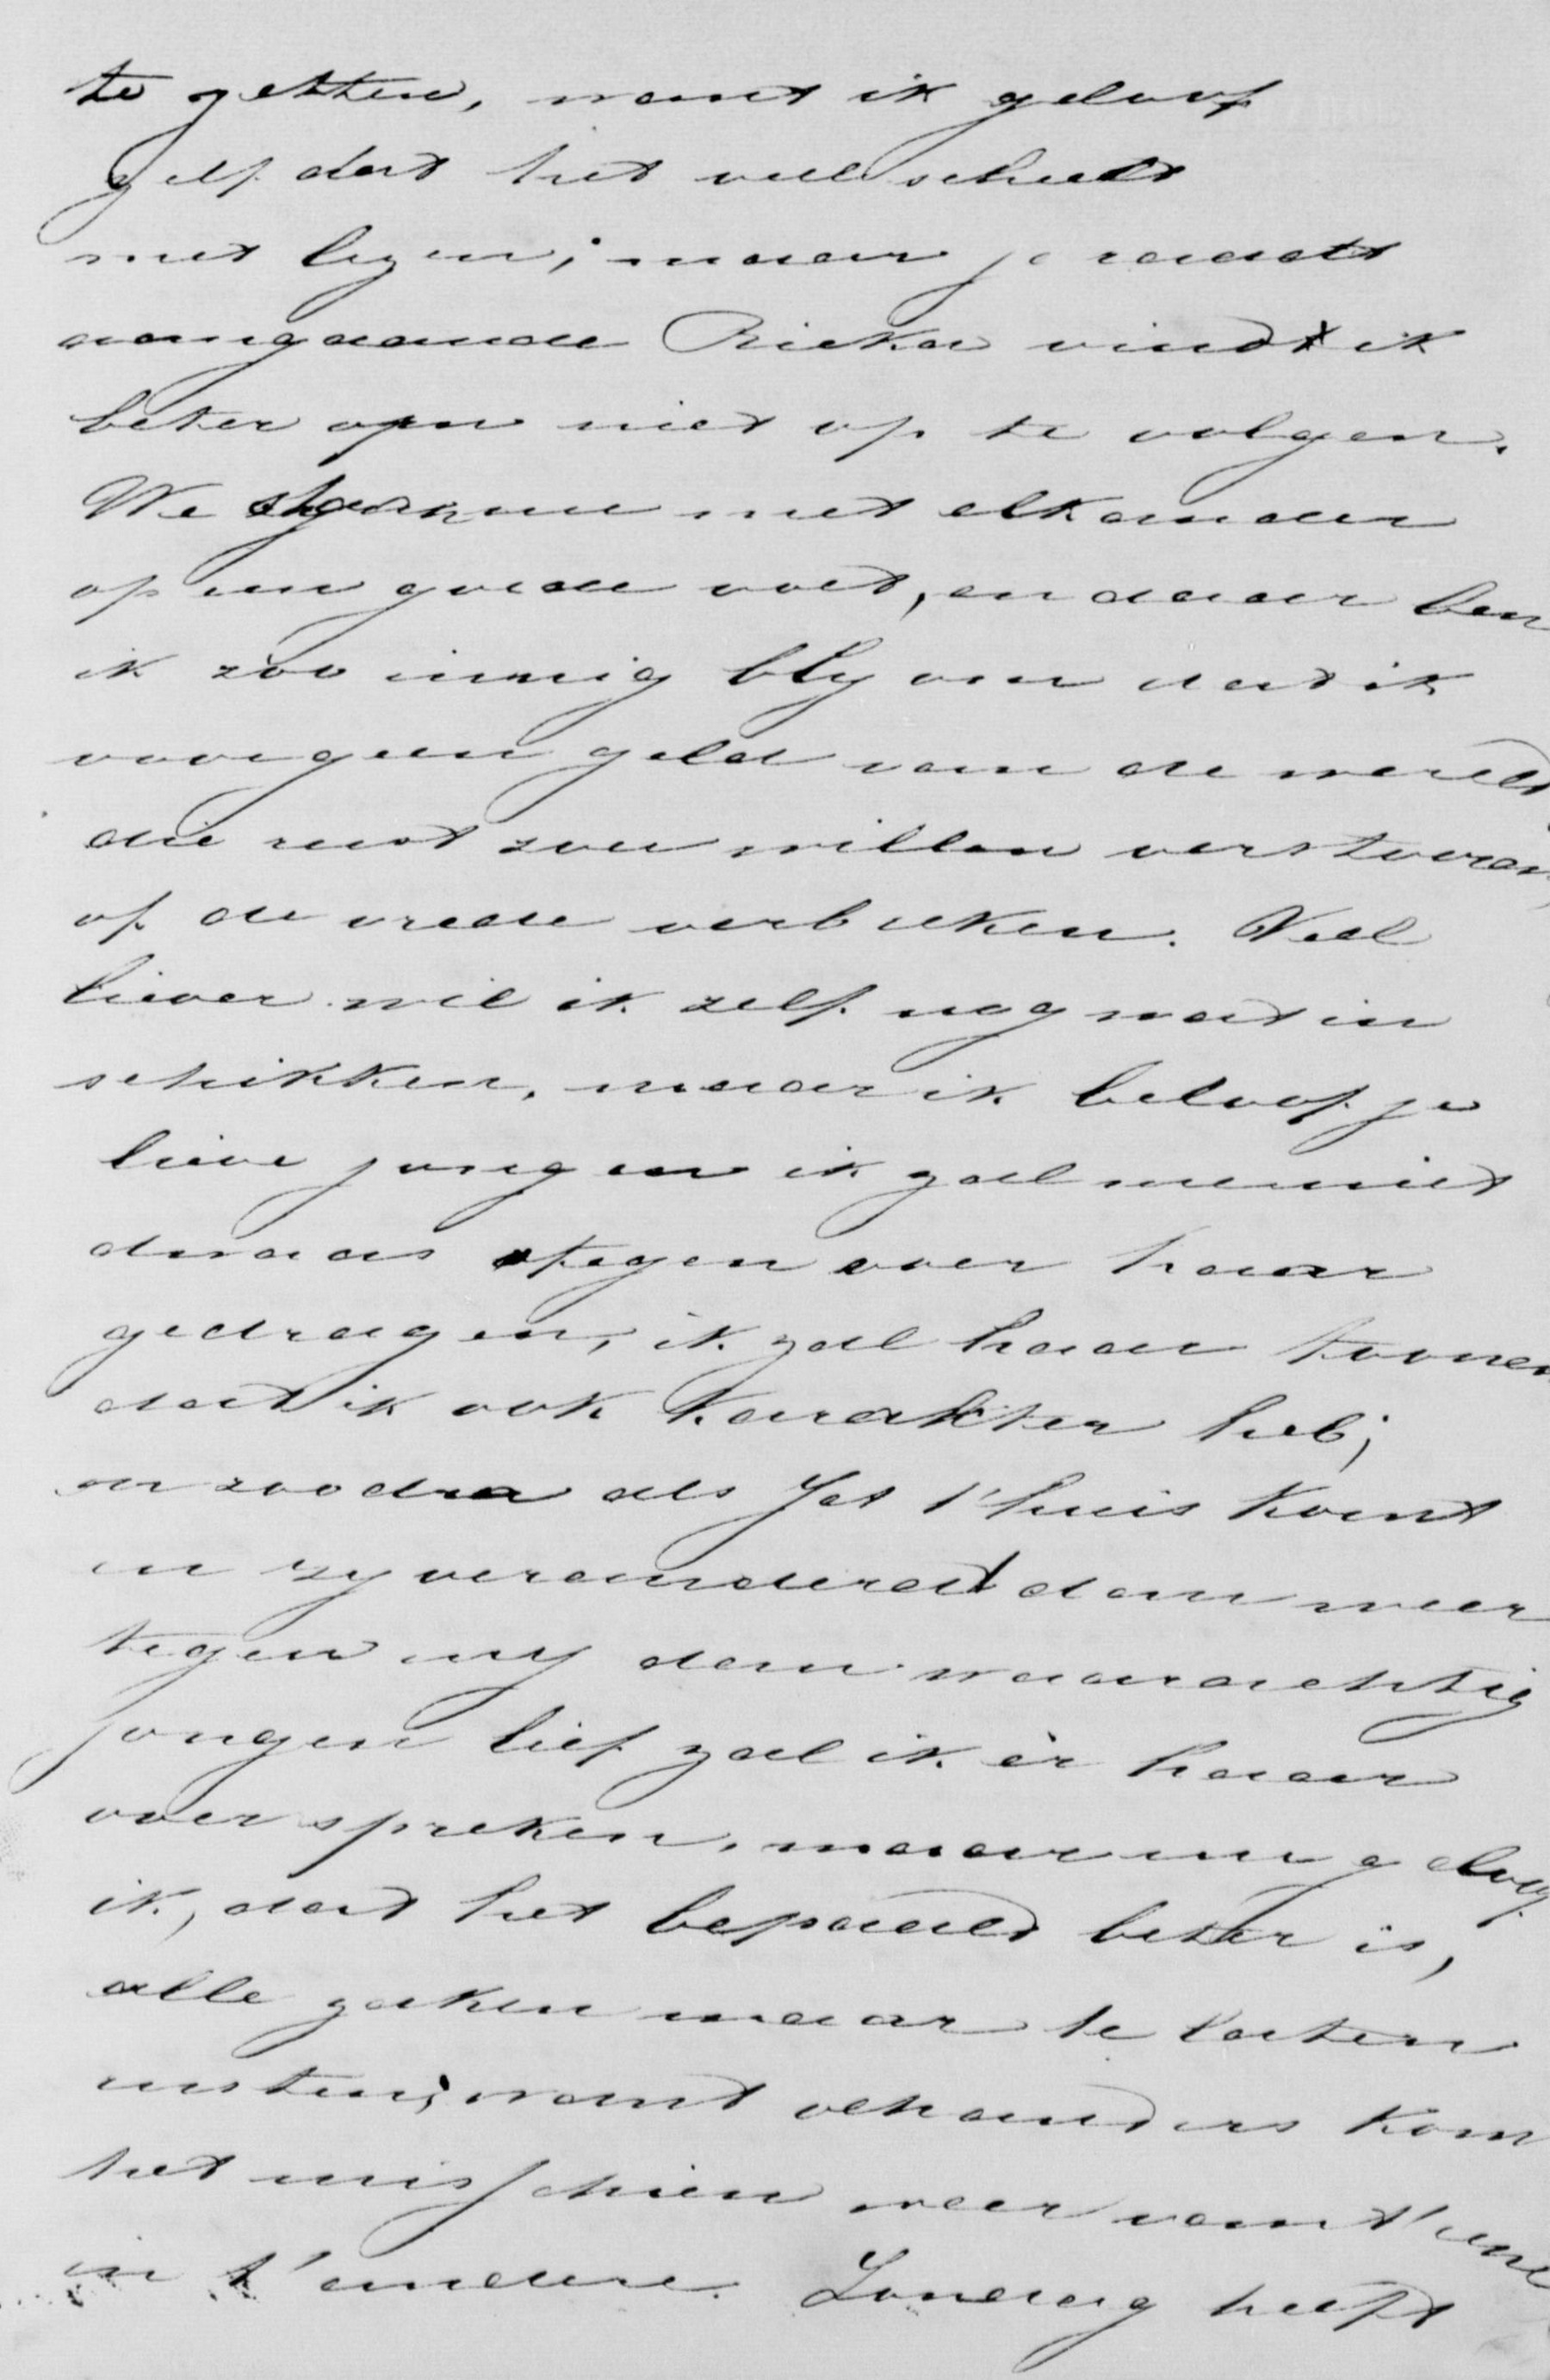 te zetten, want ik geloof
zelf dat het veel scheelt
met liggen; maar je raadt
aangaande Rieka vindt ik
beter om niet op te volgen.
We staan nu met elkander
op een goede voet, en daar ben
ik zoo innig bly om dat ik
voor geen geld van de wereld
die rust zou willen verstooren,
of de vrede verbreken. Veel
liever wil ik zelf nog wat in
schikken, maar ik beloof je
lieve jongen ik zal me niet
dwaas tegen over haar
gedragen, ik zal haar toonen
dat ik ook karakter heb;
en zoodra als Jet t'huis komt
en zy veranderd dan weer
tegen my dan waarachtig
jongen lief zal ik èr haar
over spreken, maar nu geloof
ik, dat het bepaald beter is,
alle zaken maar te laten
rusten, want och anders kom
het misschien weer van t'eene
in t'andere. Zondag heeft